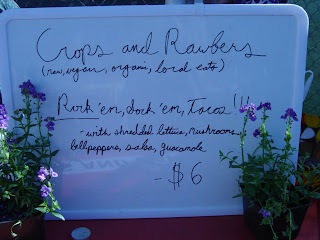 Crops and Rawbers
(raw, vegan, organic, local eats)
Rock 'em, Sock 'em, Tacos!!!
- with shredded lettuce, mushrooms,
bellpeppers, salsa, guacamole
- $6